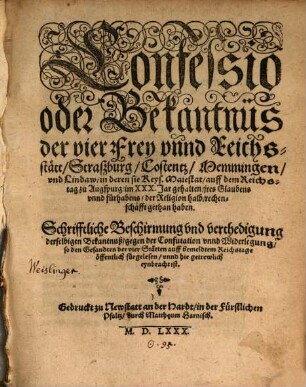 Confessio
oder Bekantnüs
der vier Frey vnnd Reichs-
stätt/ Straßburg/ Costentz/ Memmungen/
vnd Lindaw/ in deren sie Keys. Maiestat/ auff dem Reichs-
tag zu Augspurg im XXX. Jar gehalten/ jres Glaubens
vnnd fürhabens/ der Religion halb/ rechen-
schafft gethan haben.
Schrifftliche Beschirmung vnd verthedigung
derselbigen Bekantnuß/ gegen der Confutation vnnd Widerlegung/
so den Gesandten der vier Stätten auff bemeldtem Reichstage
öffentlich fürgelesen/ vnnd hie getrewlich
eynbracht ist.
Weislinger
Gedruckt zu Newstatt an der Hardt/ in der Fürstlichen
Pfaltz/ durch Mattheum Harnisch.
M. D. LXXX.